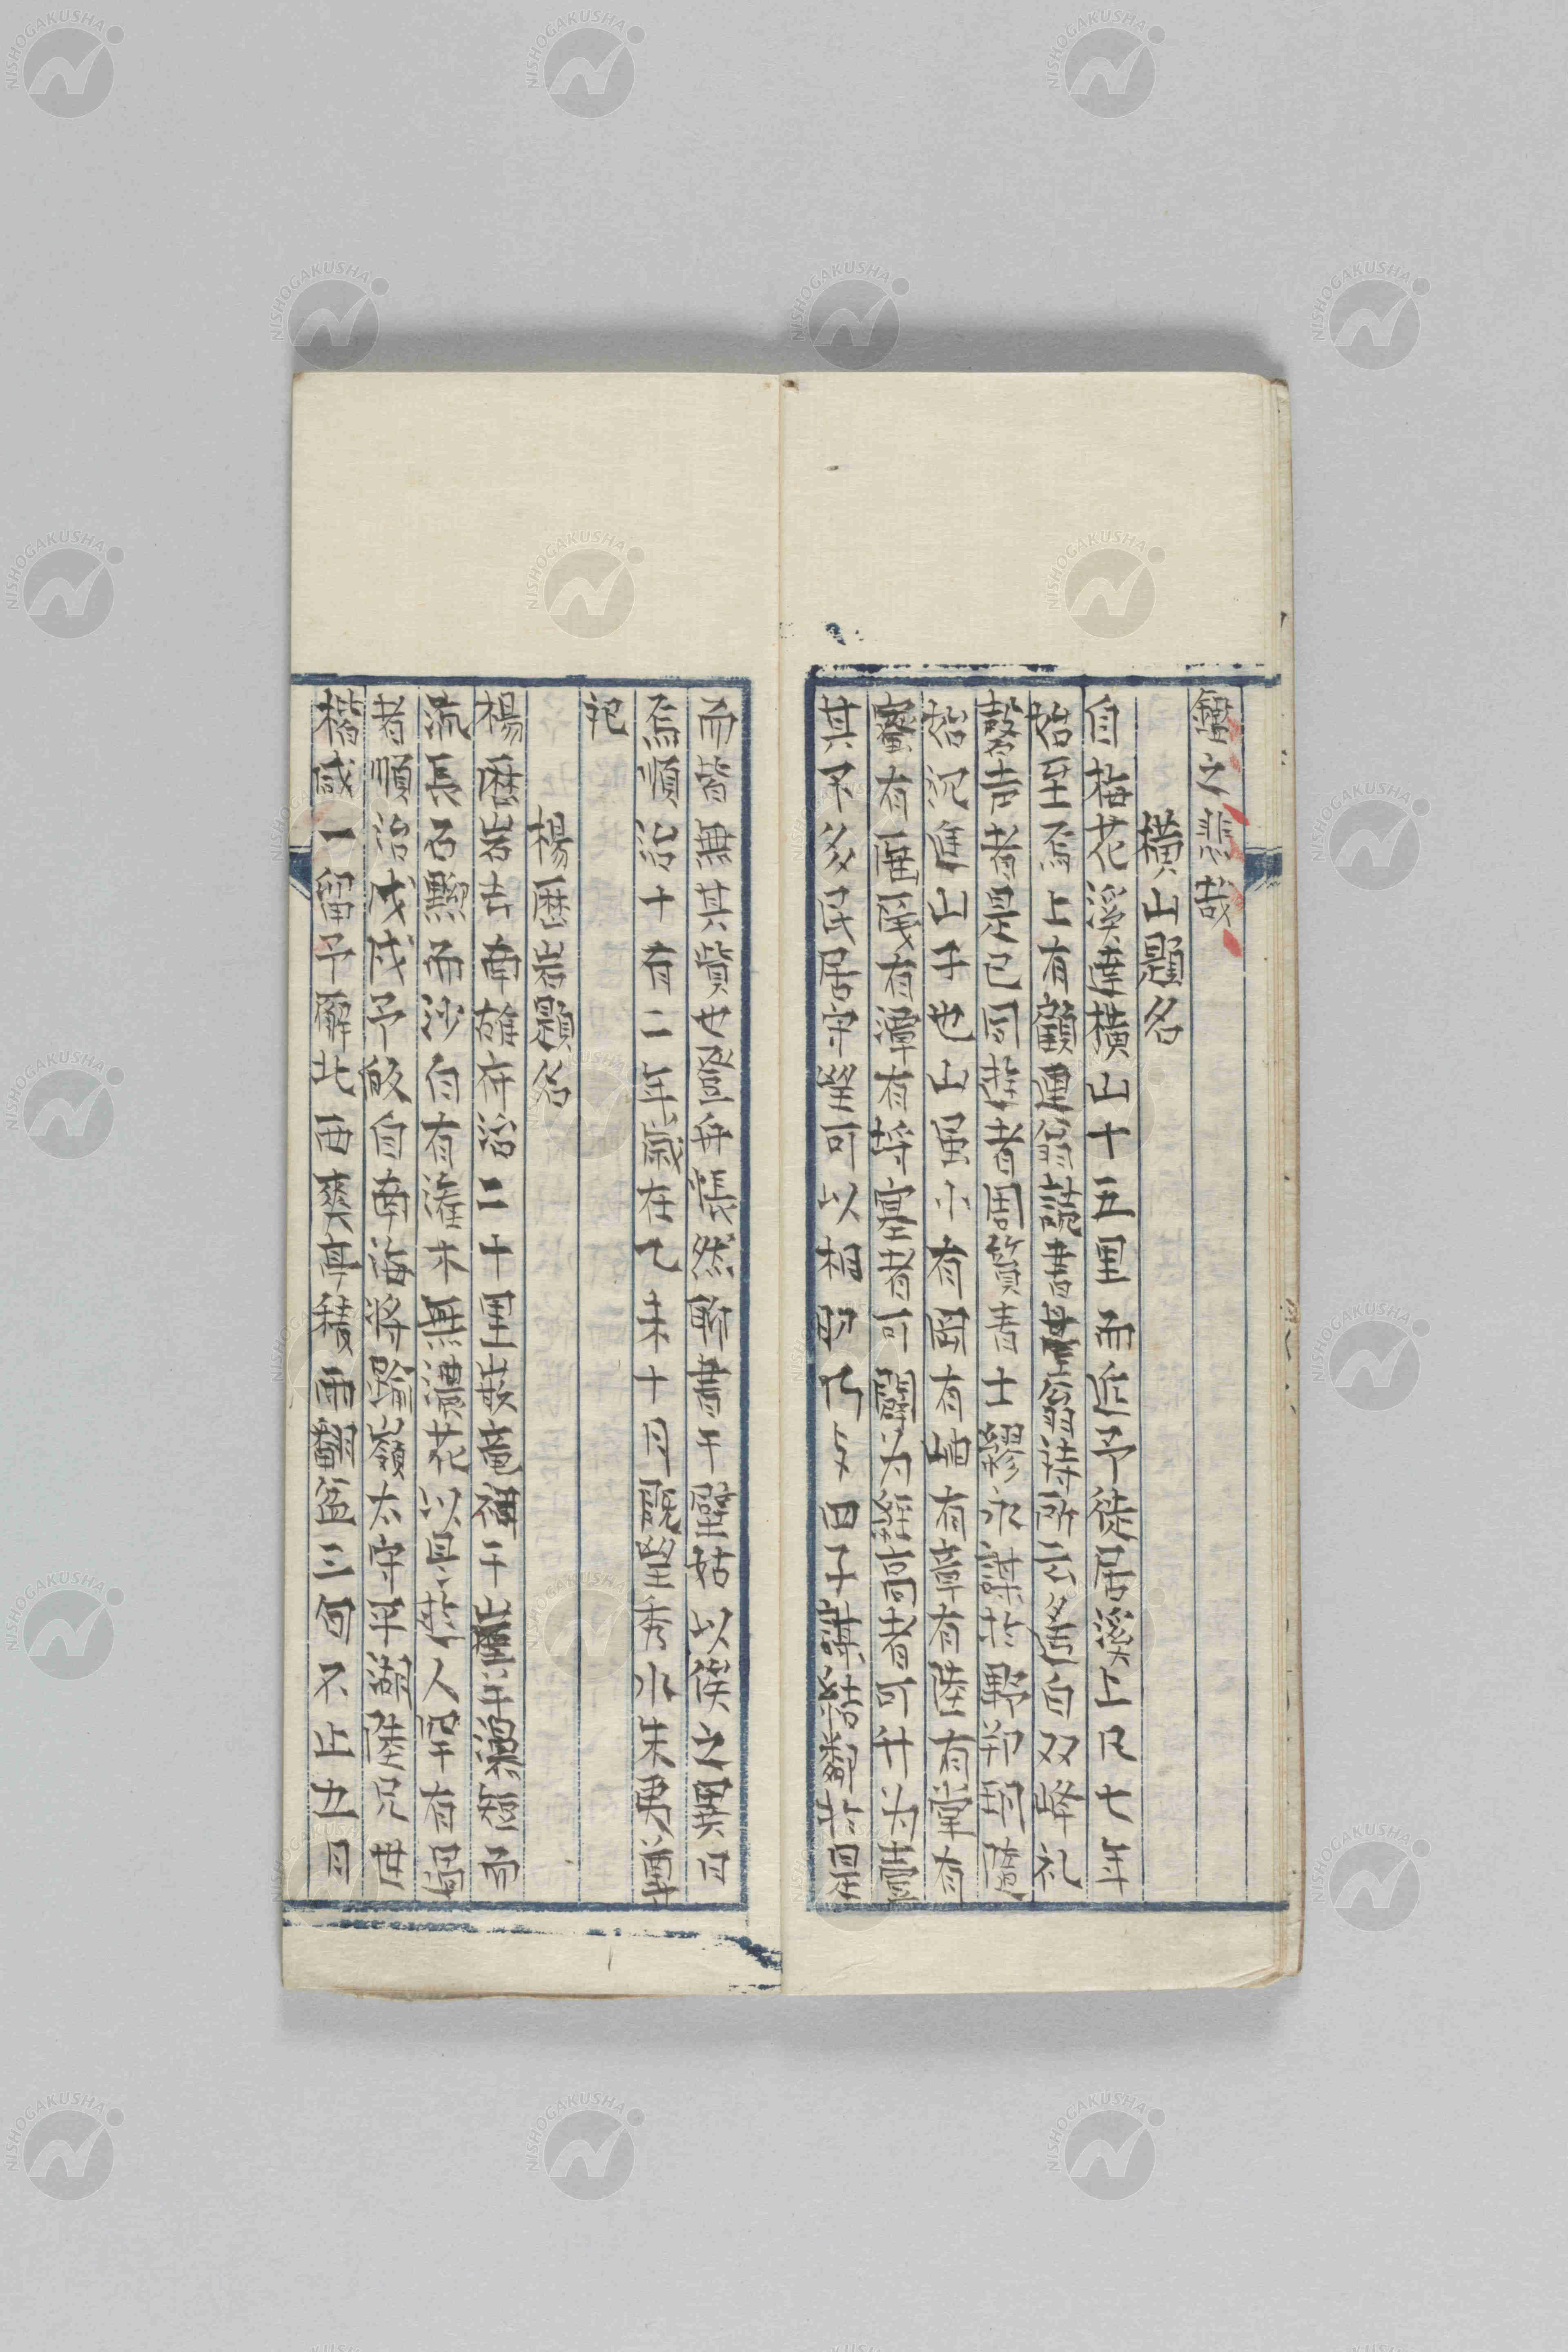 鐘之悲哉
横山題名
自梅花溪達横山十五里而近予徙居溪上凡七年
始至焉上有顧逋翁読書臺翁詩所云家自双峰礼
磬声者是已同遊者周篔青士繆永謀於野鄭玥隨
始沈進山子也山虽小有岡有岫有章有陸有堂有
密有厓䧹有潭有埒塞者可闢为径高者可升为臺
其下多民居守望可以相助乃与田子謀結鄰於是
而皆無其貲也登舟悵然聊書于壁姑以俟之異日
焉順治十有二年歲在乙未十月既望秀水朱彝尊
記
楊歴岩題名
楊歴岩去南雄府治二十里嵌竜禪于崖羊梁短而
流長石黝而沙白有灌木無濃花以是遊人罕有過
者順治戊戌予皈自南海將踰嶺太守平湖陸兄世
楷咸一留予廨北西爽亭積雨翻盆三旬不止五月